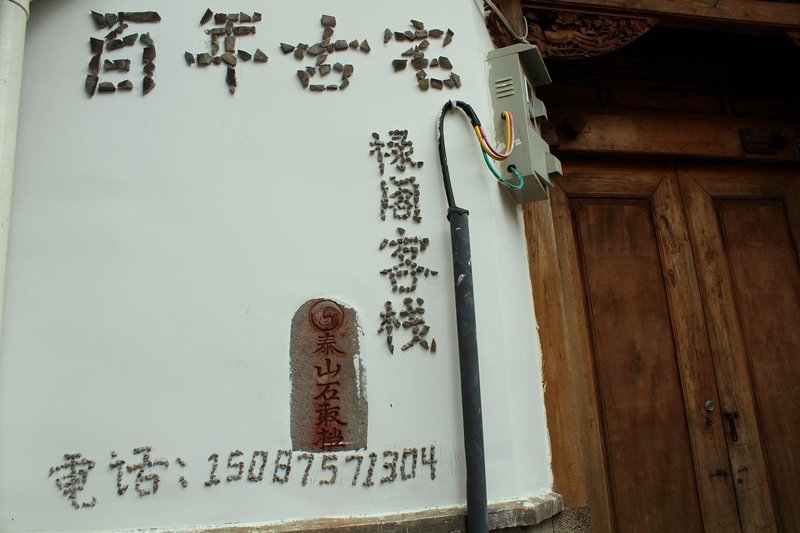 百年古宅
禄阁客栈
泰山石敢档
電话:15087571304